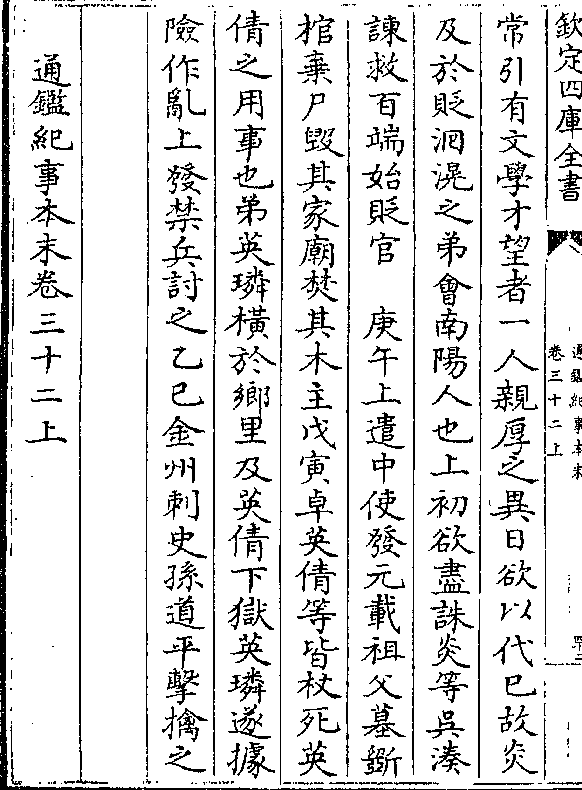 欽定四庫全書
通鑑紀事本末
卷三十二上
常引有文學才望者一人親厚之異日欲以代已故炎
及於貶洄滉之弟會南陽人也上初欲盡誅炎等吳湊
諫救百端始貶官　庚午上遣中使發元載祖父墓斵
棺棄尸毁其家廟焚其木主戊寅卓英倩等皆杖死英
倩之用事也弟英璘橫於鄉里及英倩下獄英璘遂據
險作亂上發禁兵討之乙巳金州刺史孫道平擊擒之
通鑑紀事本末卷三十二上